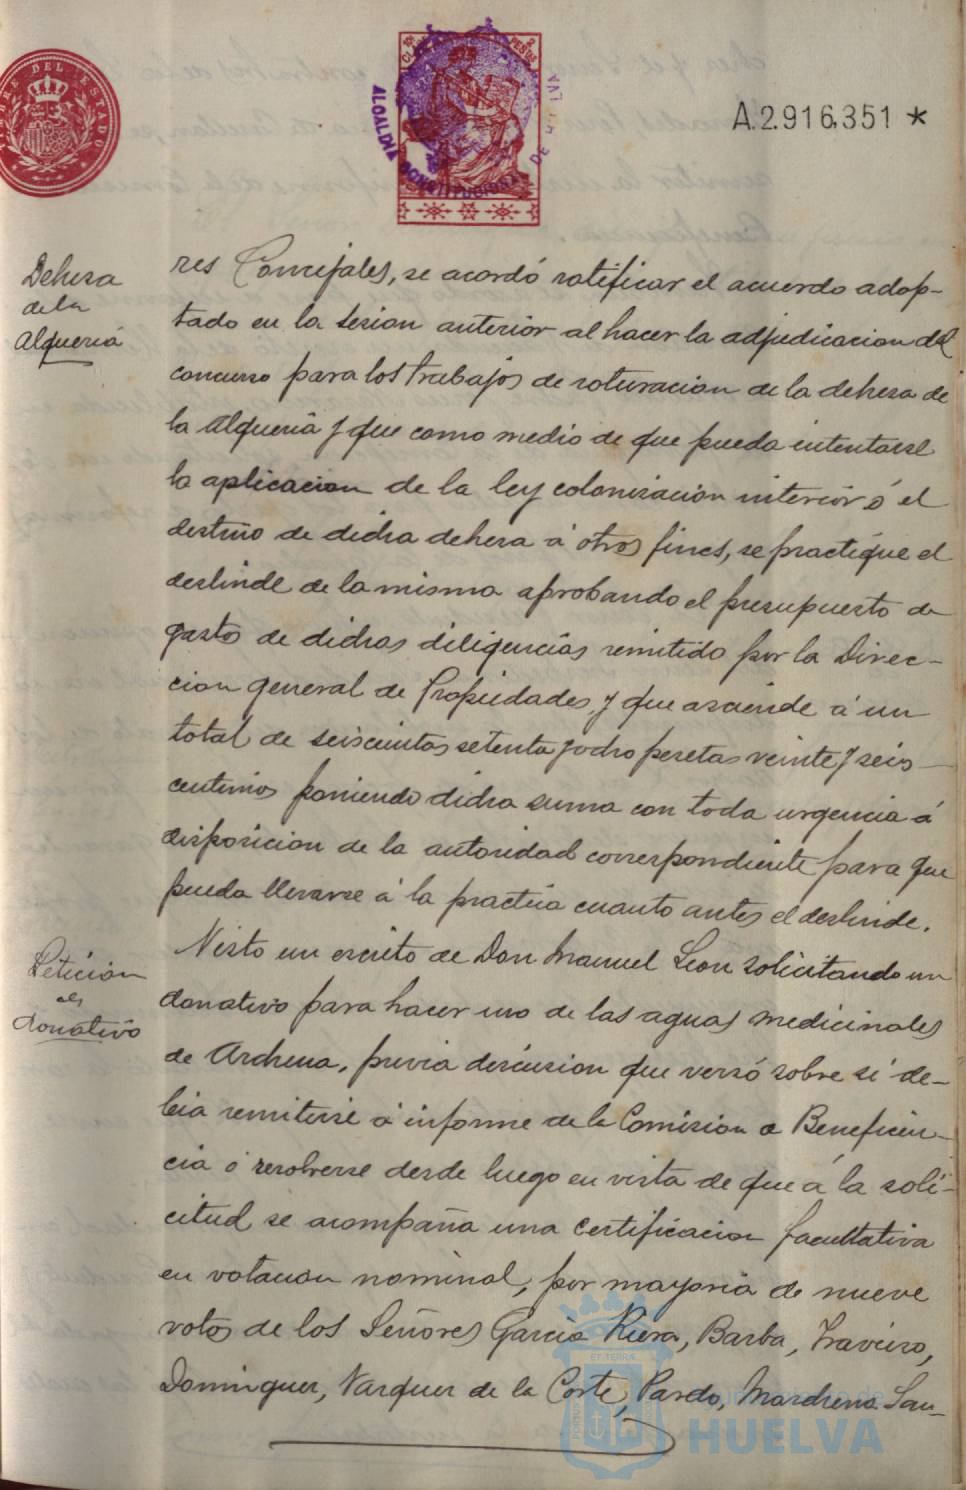 TIMBRE DEL ESTADO
PESETAS
ALCALDIA CONSTITUCIONAL DE HUELVA
A.2.916.351 *
Dehesa
de la
Alqueria
res Concejales, se acordó ratificar el acuerdo adop-
tado en la sesion anterior al hacer la adjudicacion del
concurso para los trabajos de roturacion de la dehesa de
la Alqueria y que como medio de que pueda intentarse
la aplicacion de la ley colonizacion interior ó el
destino de dicha dehesa á otros fines, se practique el
deslinde de la misma aprobando el presupuesto de
gastos de dichas diligencias remitido por la Direc-
cion general de Propiedades y que asciende á un
total de seiscientas setenta y ocho pesetas veinte y seis
centimos poniendo dicha suma con toda urgencia á
disposicion de la autoridad correspondiente para que
pueda llevarse á la practica cuanto antes el deslinde.
Peticion
de
donativo
Visto un escrito de Don Manuel Leon solicitando un
donativo para hacer uso de las aguas medicinales
de Archena, previa discusion que versó sobre si de-
bia remitirse á informe de la Comision de Beneficen-
cia ó resolverse desde luego en vista de que á la soli-
citud se acompaña una certificacion facultativa
en votacion nominal, por mayoria de nueve
votos de los Señores Garcia Riera, Barba, Travieso,
Dominguez, Vazquez de la Corte, Pardo, Marchena San-
Ayuntamiento de
HUELVA